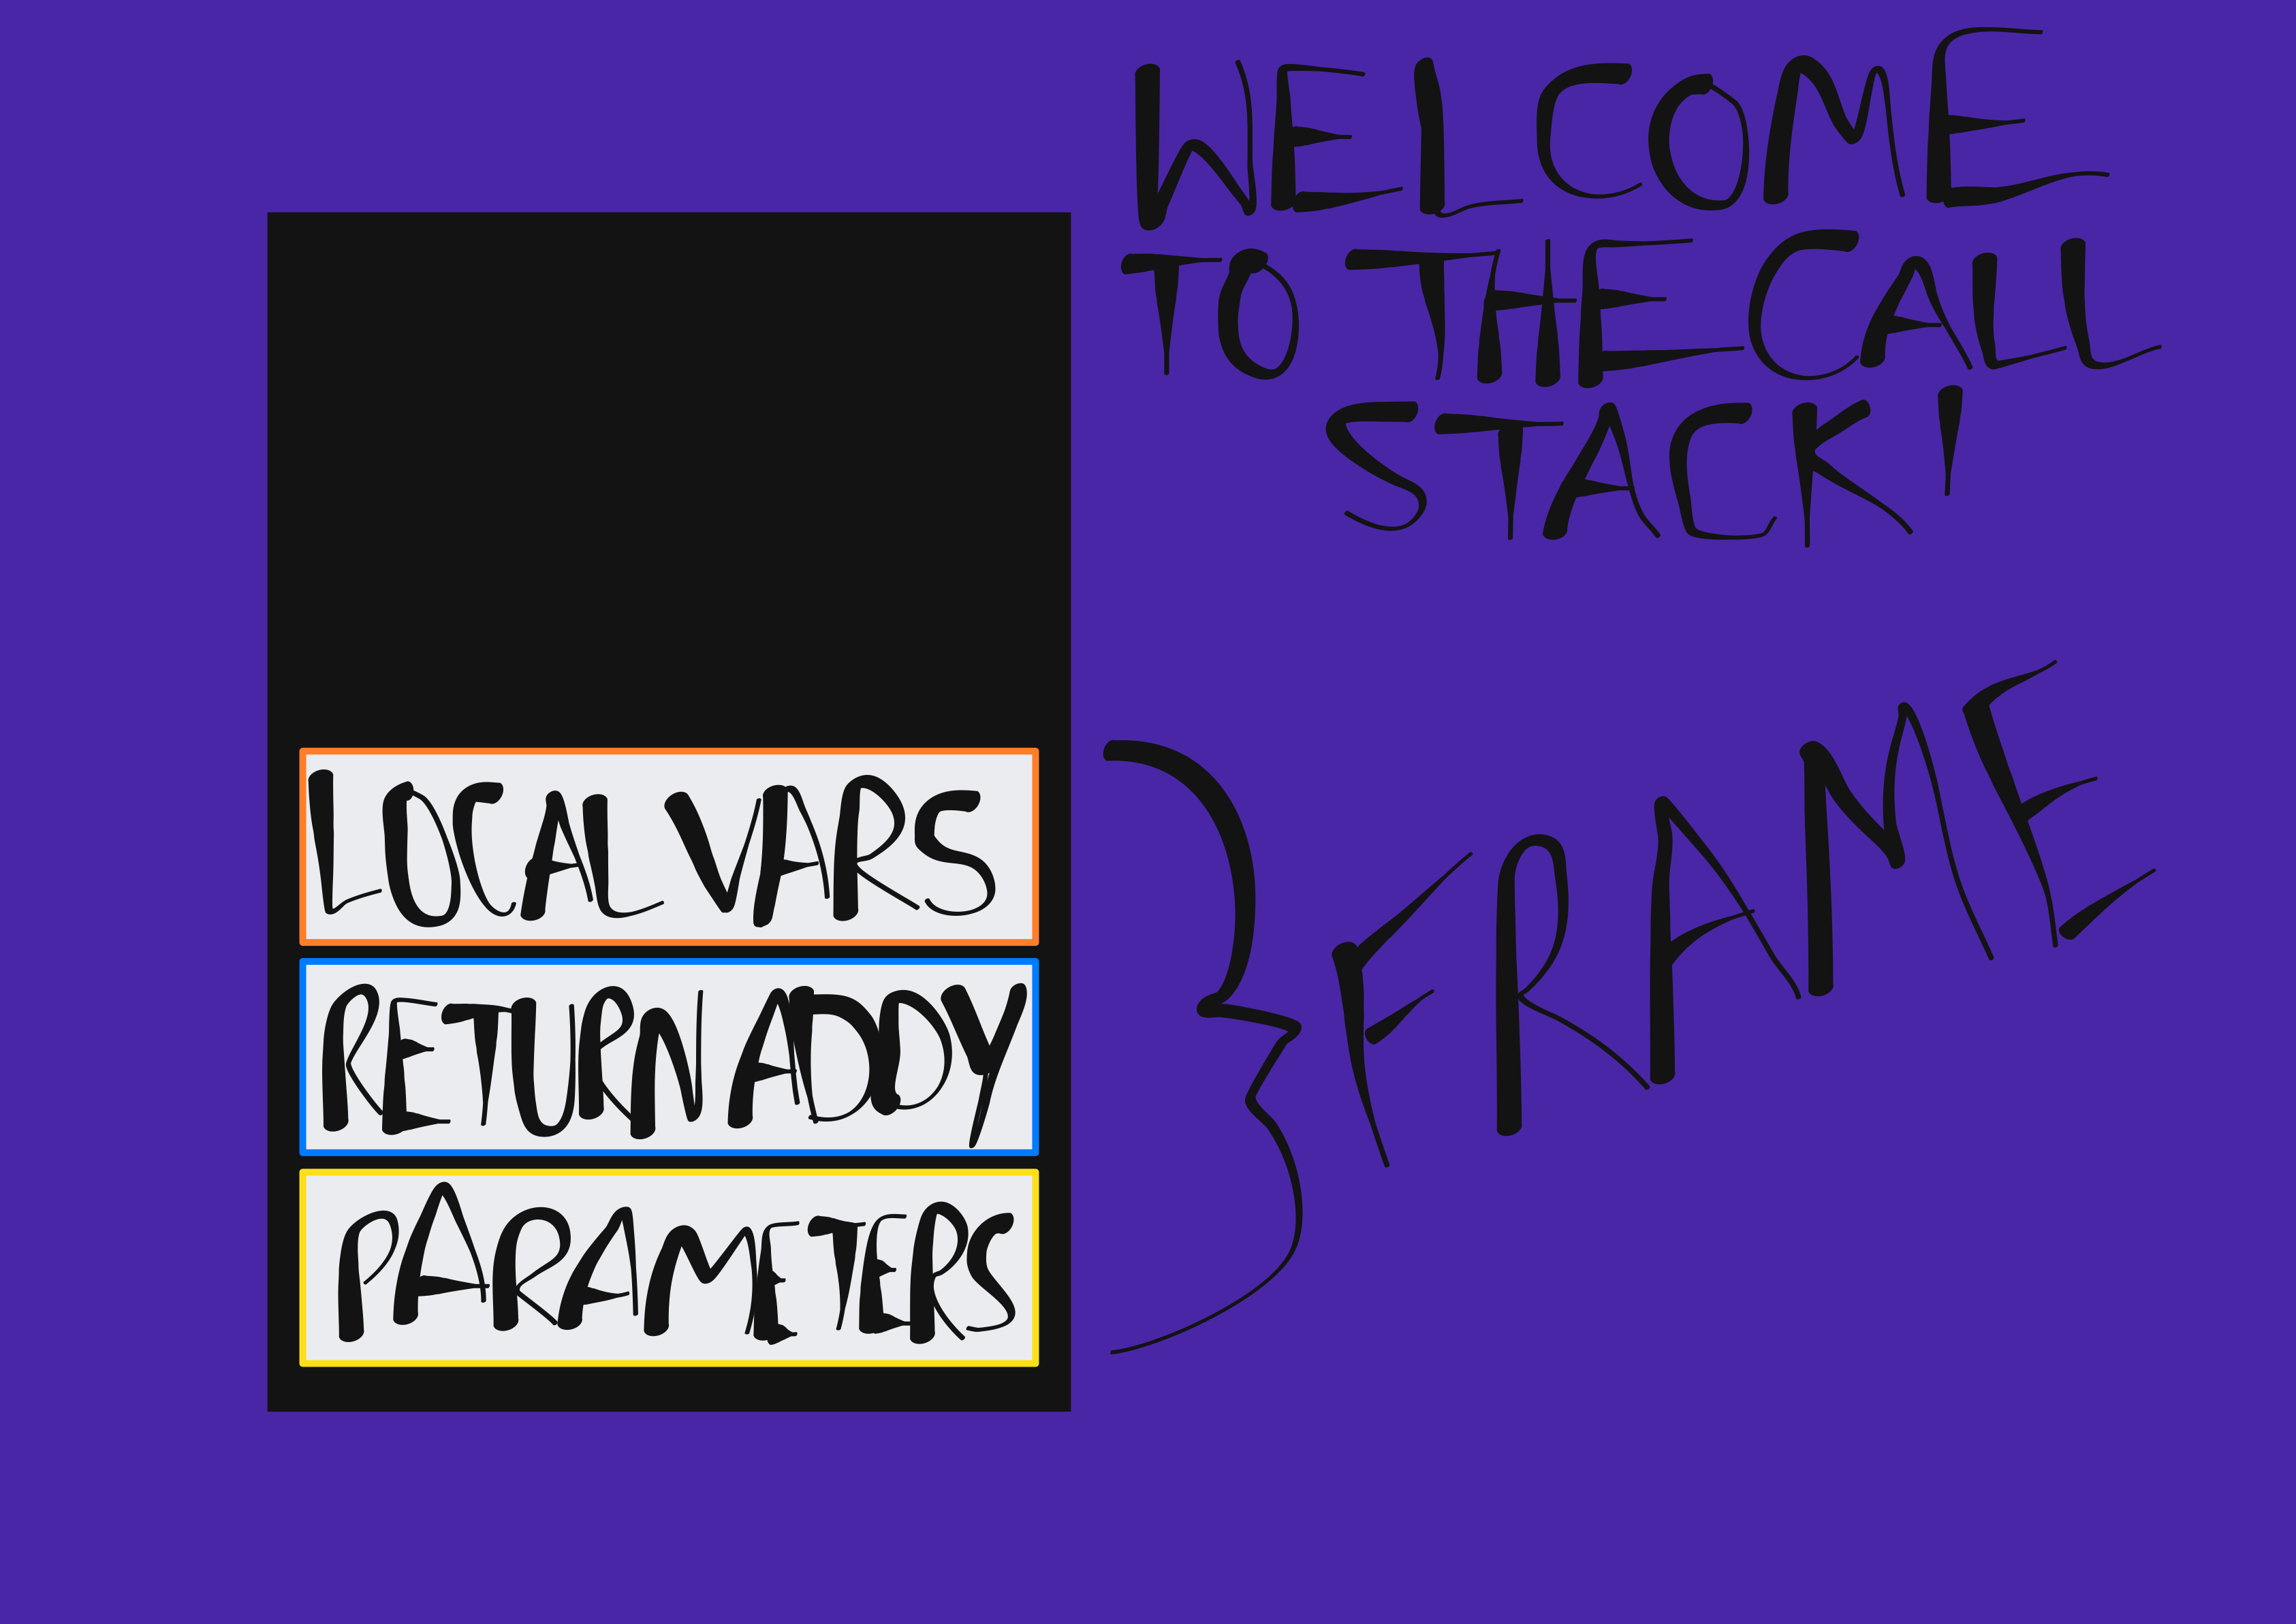 WELCOME
TO THE CALL
STACK!
LOCAL VARS
RETURN ADDY
PARAMETERS
FRAME